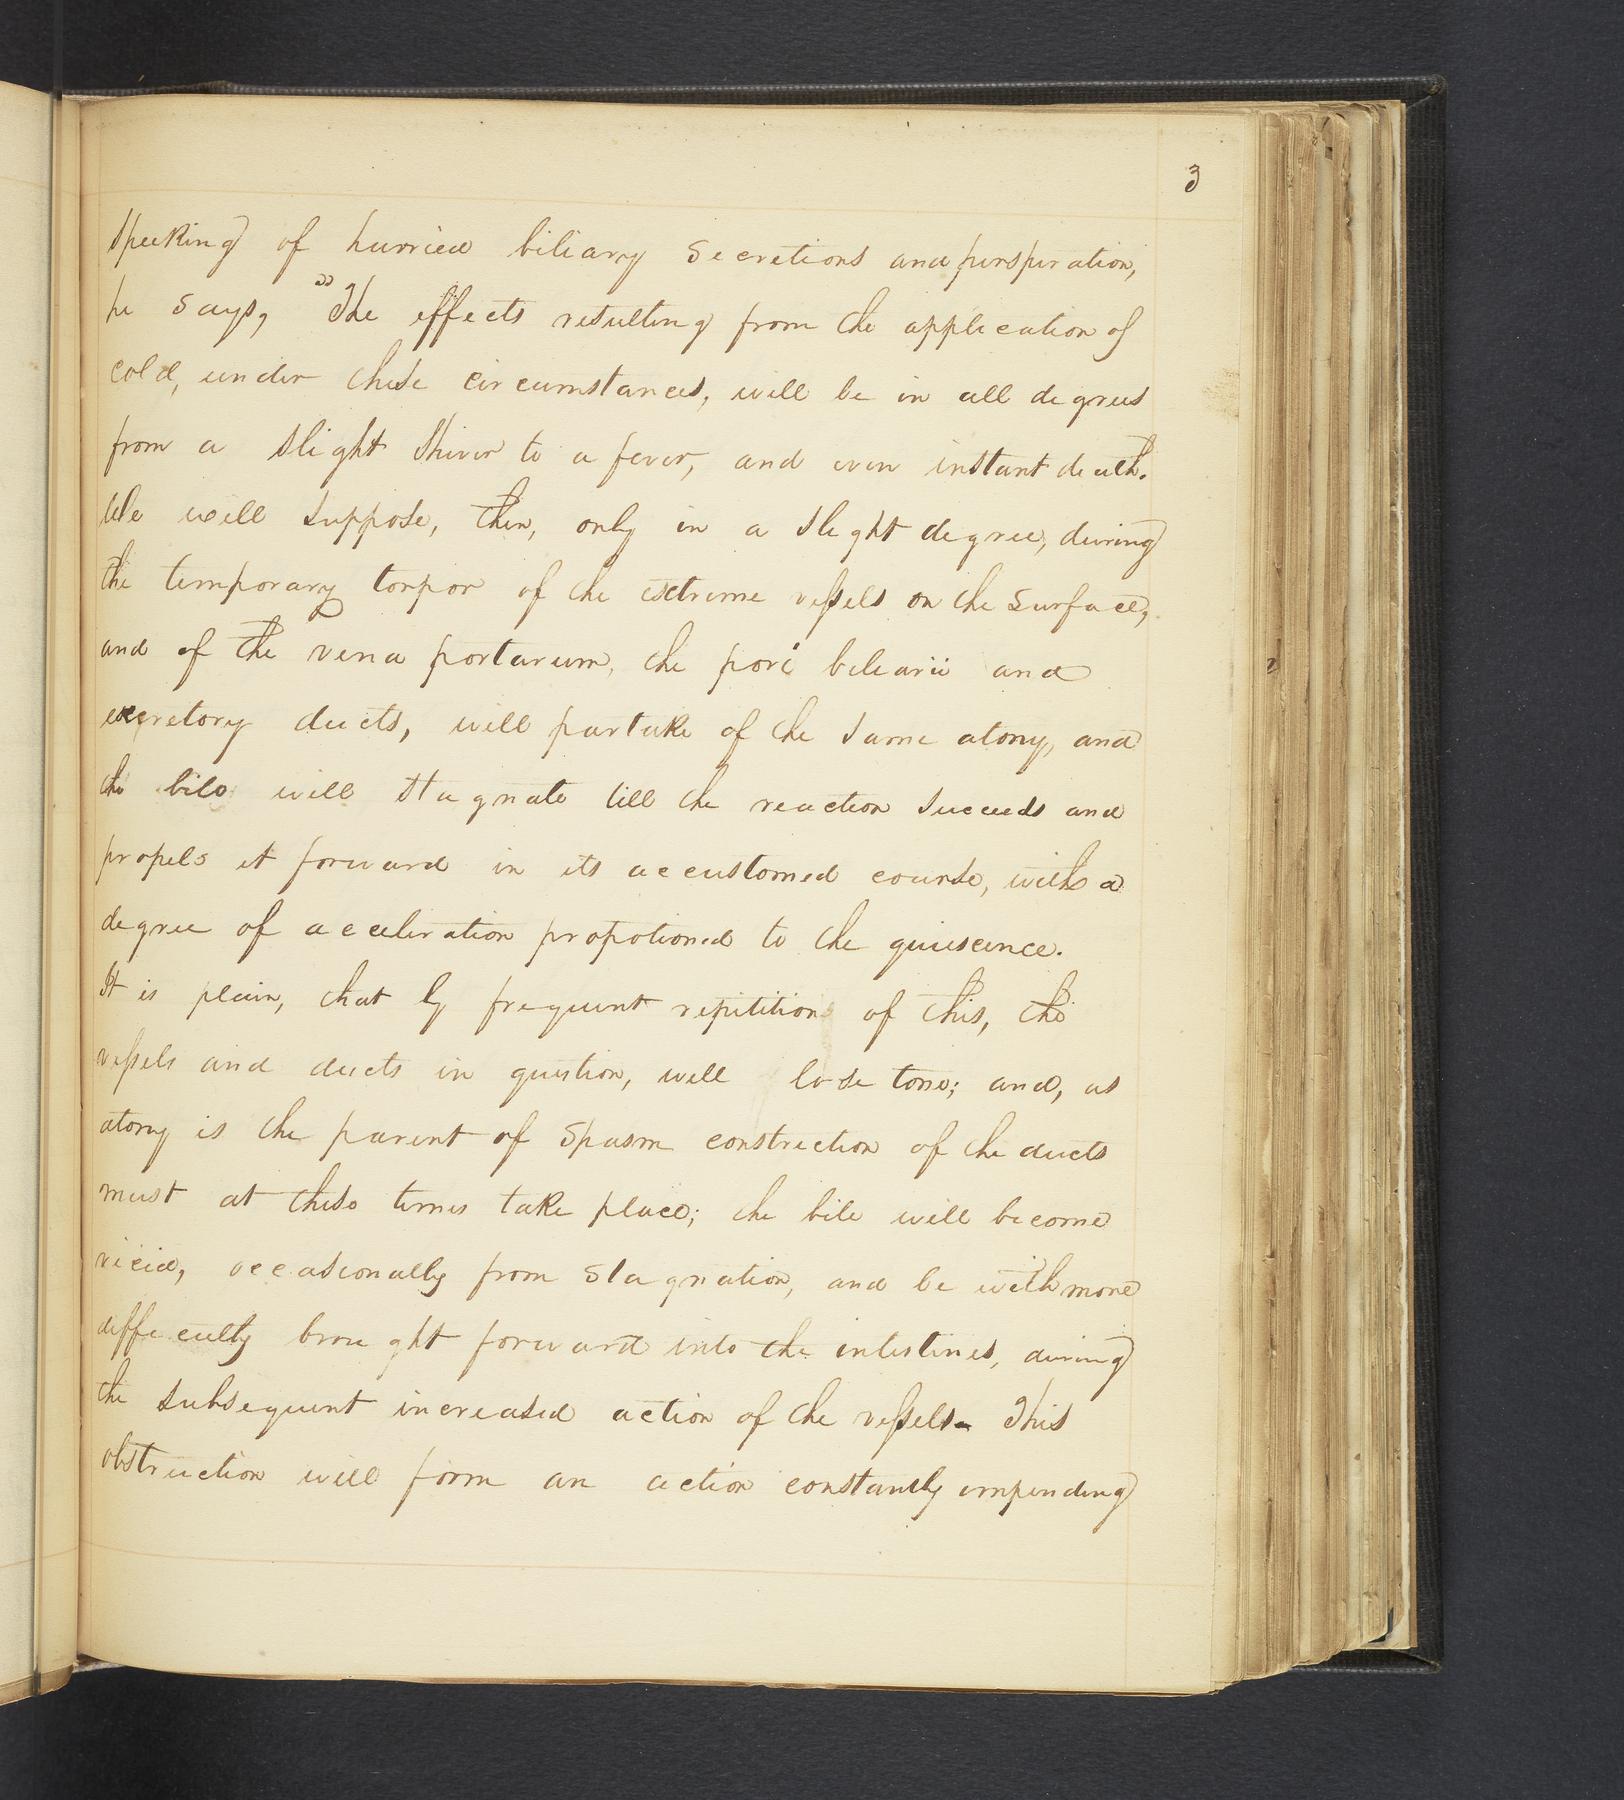 3
Speeking of hurried biliary Secretions and perspiration,
he says, "The effects resulting from the application of
cold, under these circumstances, will be in all degrees
from a slight Shiver to a fever, and even instant death.
We will suppose, then, only in a slight degree, during
the temporary torpor of the extreme vessels on the Surface,
and of the vena portarum, the pori biliarii and
excretory ducts, will partake of the same atony, and
the bile will stagnate till the reaction succeeds and
propels it forward in its accustomed course, with a
degree of acceleration propotioned to the quiescence.
It is plain, that by frequent repitition of this, the
vessels and ducts in question, will lose tone; and, as
atony is the parent of Spasm constriction of the ducts
must at these times take place; the bile will become
vicid, occasionally from Stagnation, and be with more
difficulty brought forward into the intestines, during
the subsequent increased action of the vessels- This
obstruction will form an action constantly impending